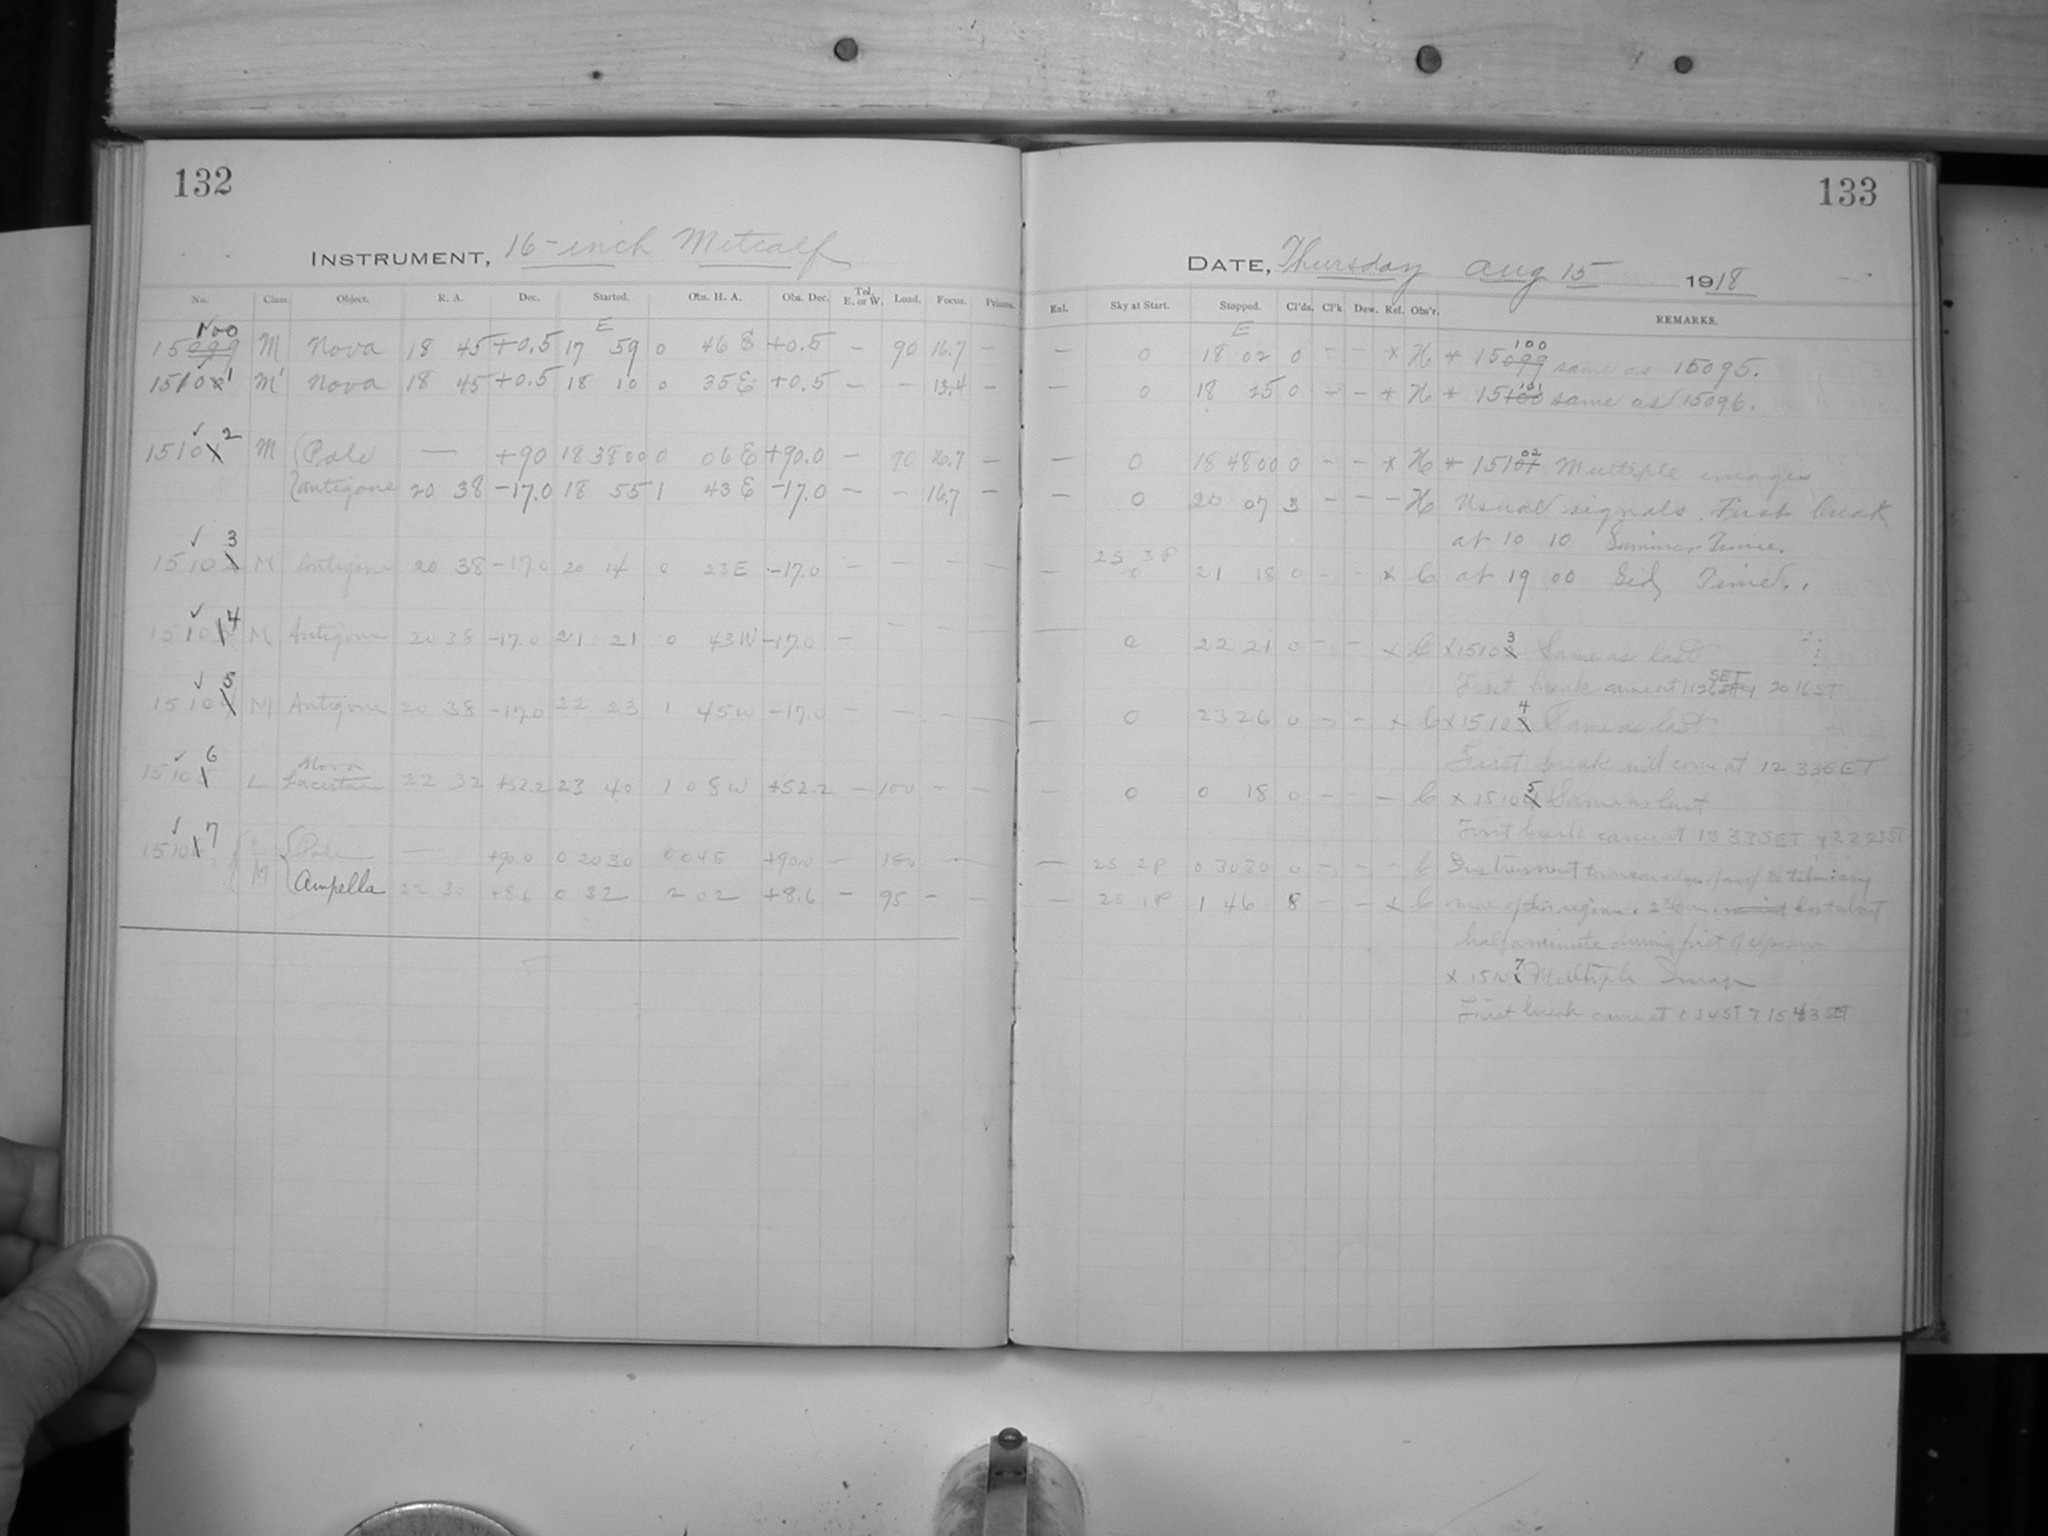 132
INSTRUMENT, 16-inch Metcalf
No. Class. Object. R. A. Dec. Started. Obs. H. A. Obs. Dec. Tel. E. or W. Load. Focus. Prisms.
E
15099 100 M Nova 18 45 +0.5 17 59 0 46 E +0.5 – 90 16.7 –
1510x 1 M Nova 18 45 +0.5 18 10 0 35 E +0.5 – – 13.4 –
1510x 2 M Pole — +90 18 38 00 0 06 E +90.0 – 90 16.7 –
Antigone 20 38 -17.0 18 55 1 43 E -17.0 – – 16.7 –
1510 3 M Antigone 20 38 -17.0 20 14 0 23 E -17.0 –
1510 4 M Antigone 20 38 -17.0 21 21 0 43 W -17.0 –
1510 5 M Antigone 20 38 -17.0 22 23 1 45 W -17.0 –
1510 6 L Nova Lacertae 22 32 +52.2 23 40 1 08 W +52.2 – 100 – –
1510 7 L Pole — +90.0 0 20 30 0 04 E +90.0 – 100
M Ampella 22 30 +8.6 0 32 2 02 +8.6 – 95 –
133
DATE, Thursday Aug 15 1918
Enl. Sky at Start. Stopped. Cl'ds. Cl'k Dew. Ref. Obs'r. REMARKS.
E
– 0 18 02 0 – – * H * 15099 100 same as 15095.
– 0 18 25 0 – – * H * 15100 101 same as 15096.
– 0 18 48 00 0 – – * H * 15101 02 Multiple images
– 0 20 07 3 – – – H Usual signals. First break
at 10 10 Summer Time.
– 2S 3P 21 18 0 – – x C at 19 00 Sid. Time.
0 22 21 0 – – x C x 1510 3 Same as last
First break came at 20 16 ST
– 0 23 26 0 – – x C x 1510 4 Same as last
First break will come at 12 33 SET
– 0 0 18 0 – – – C x 1510 5 Same as last
First break came at 13 33 SET
– 2S 2P 0 30 30 0 – – – C Instrument
– 2S 1P 1 46 8 – – x C
half a minute during first of exposure
x 1510 7 Multiple Image
First break came at